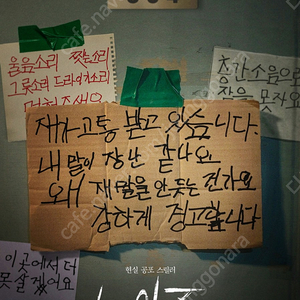 울음소리 쩍소리
그릇소리 드라이소리
멈춰주세요
층간소음으로
잠을 못자요
제가 고통 받고 있습니다.
내 말이 장난 같나요
왜 제 말을 안 듣는 건가요
강하게 경고합니다
이 곳에서 더
못살겠어요
현실 공포 스릴러
노이즈